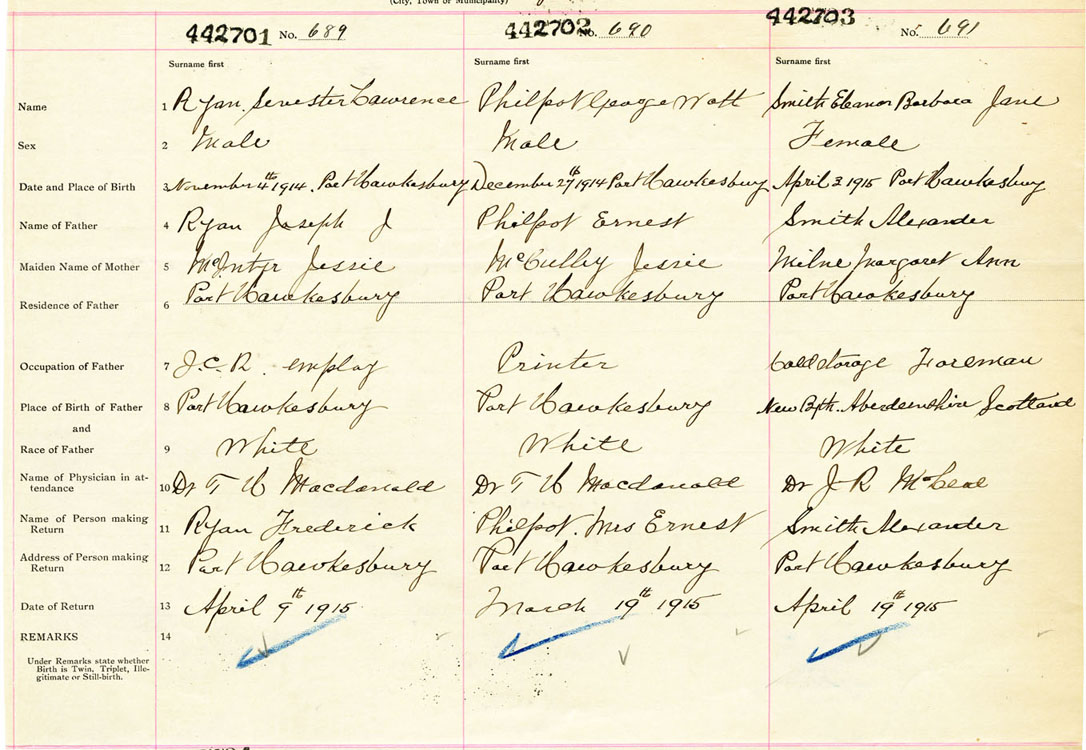 (City, Town or Municipality)
442701 No. 689 442702 No. 690 442703 No. 691
Surname first Surname first Surname first
Name 1 Ryan Sevester Lawrence Philpot George Watt Smith Eleanor Barbara Jane
Sex 2 Male Male Female
Date and Place of Birth 3 November 4th 1914. Port Hawkesbury December 27th 1914 Port Hawkesbury April 2 1915 Port Hawkesbury
Name of Father 4 Ryan Joseph J Philpot Ernest Smith Alexander
Maiden Name of Mother 5 McIntyr Jessie McCulley Jessie Milne Margaret Ann
Residence of Father 6 Port Hawkesbury Port Hawkesbury Port Hawkesbury
Occupation of Father 7 employ Printer Cold storage Foreman
Place of Birth of Father 8 Port Hawkesbury Port Hawkesbury New Aberdeenshire Scotland
and
Race of Father 9 White White White
Name of Physician in at-
tendance 10 Dr T H Macdonald Dr T H Macdonald Dr J R
Name of Person making
Return 11 Ryan Frederick Philpot. Mrs Ernest Smith Alexander
Address of Person making
Return 12 Port Hawkesbury Port Hawkesbury Port Hawkesbury
Date of Return 13 April 9th 1915 March 19th 1915 April 19th 1915
REMARKS 14
Under Remarks state whether
Birth is Twin, Triplet, Ille-
gitimate or Still-birth.